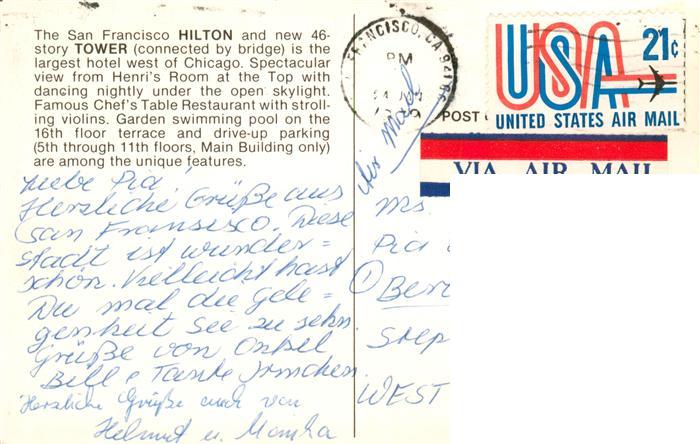 The San Francisco HILTON and new 46-
story TOWER (connected by bridge) is the
largest hotel west of Chicago. Spectacular
view from Henri's Room at the Top with
dancing nightly under the open skylight.
Famous Chef's Table Restaurant with stroll-
ing violins. Garden swimming pool on the
16th floor terrace and drive-up parking
(5th through 11th floors, Main Building only)
are among the unique features.
Liebe Pia!
Herzliche Grüße aus
San Fransisco. Diese
Stadt ist wunder=
schön. Vielleicht hast
Du mal die Gele=
genheit sie zu sehn.
Grüße von Onkel
Bill & Tante Irmchen.
Herzliche Grüße auch von
Helmut u. Monika
FRANCISCO, CA
PM
Air Mail
USA 21c
UNITED STATES AIR MAIL
POST
VIA AIR MAIL
Ms.
Pia
① Ber
Step
WEST